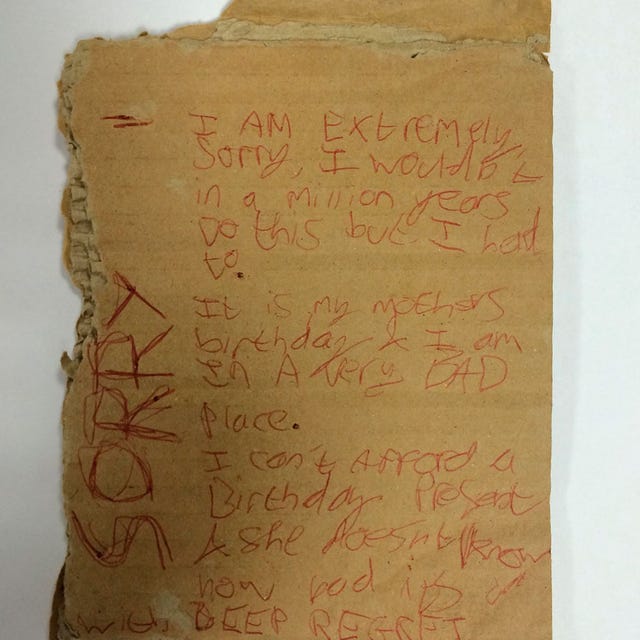 I AM Extremely
Sorry, I wouldn't
in a million years
Do this but I had
to.
It is my mothers
birthday & I am
in A very BAD
place.
I can't Afford a
Birthday Present
& she doesn't know
how bad it's
with DEEP REGRET
SORRY